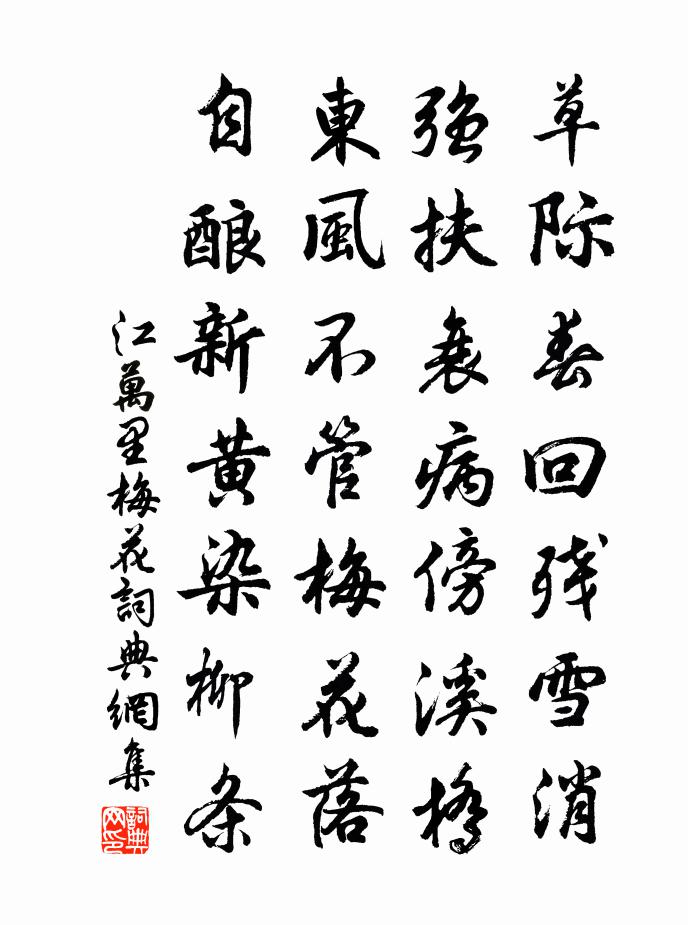 草际春回残雪消
强扶衰病傍溪桥
東風不管梅花落
自酿新黄染柳条
江萬里梅花詞典網集
詞典网印